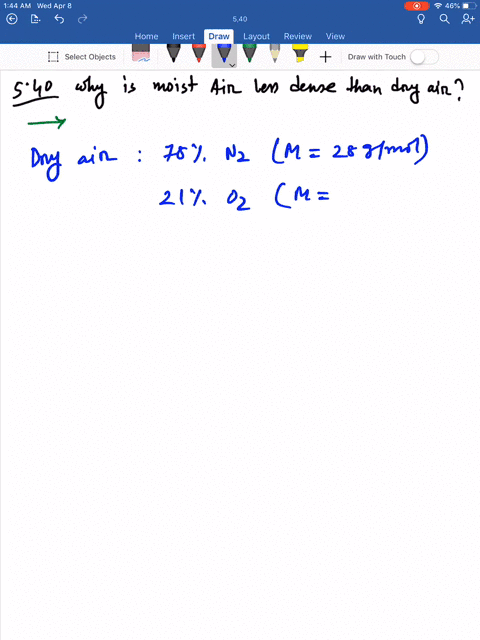 1:44 AM Wed Apr 8
46%
5.40
Home Insert Draw Layout Review View
Select Objects
Draw with Touch
5.40 why is moist Air less dense than dry air?
Dry air : 78% N2 (M = 28 g/mol)
21% O2 (M =